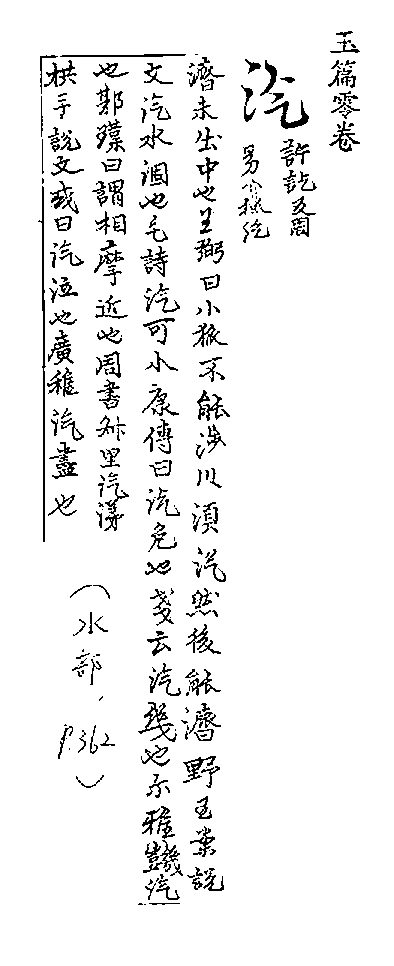 玉篇零卷
汽
許訖反周
易小狐汽
濟未出中也王弼曰小狐不能涉川須汽然後能濟野王案說
文汽水涸也毛詩汽可小康傳曰汽危也箋云汽幾也尒雅𧰙汽
也郭璞曰謂相摩近也周書里汽
栱手說文或曰汽泣也廣雅汽盡也
(水部, P.362)